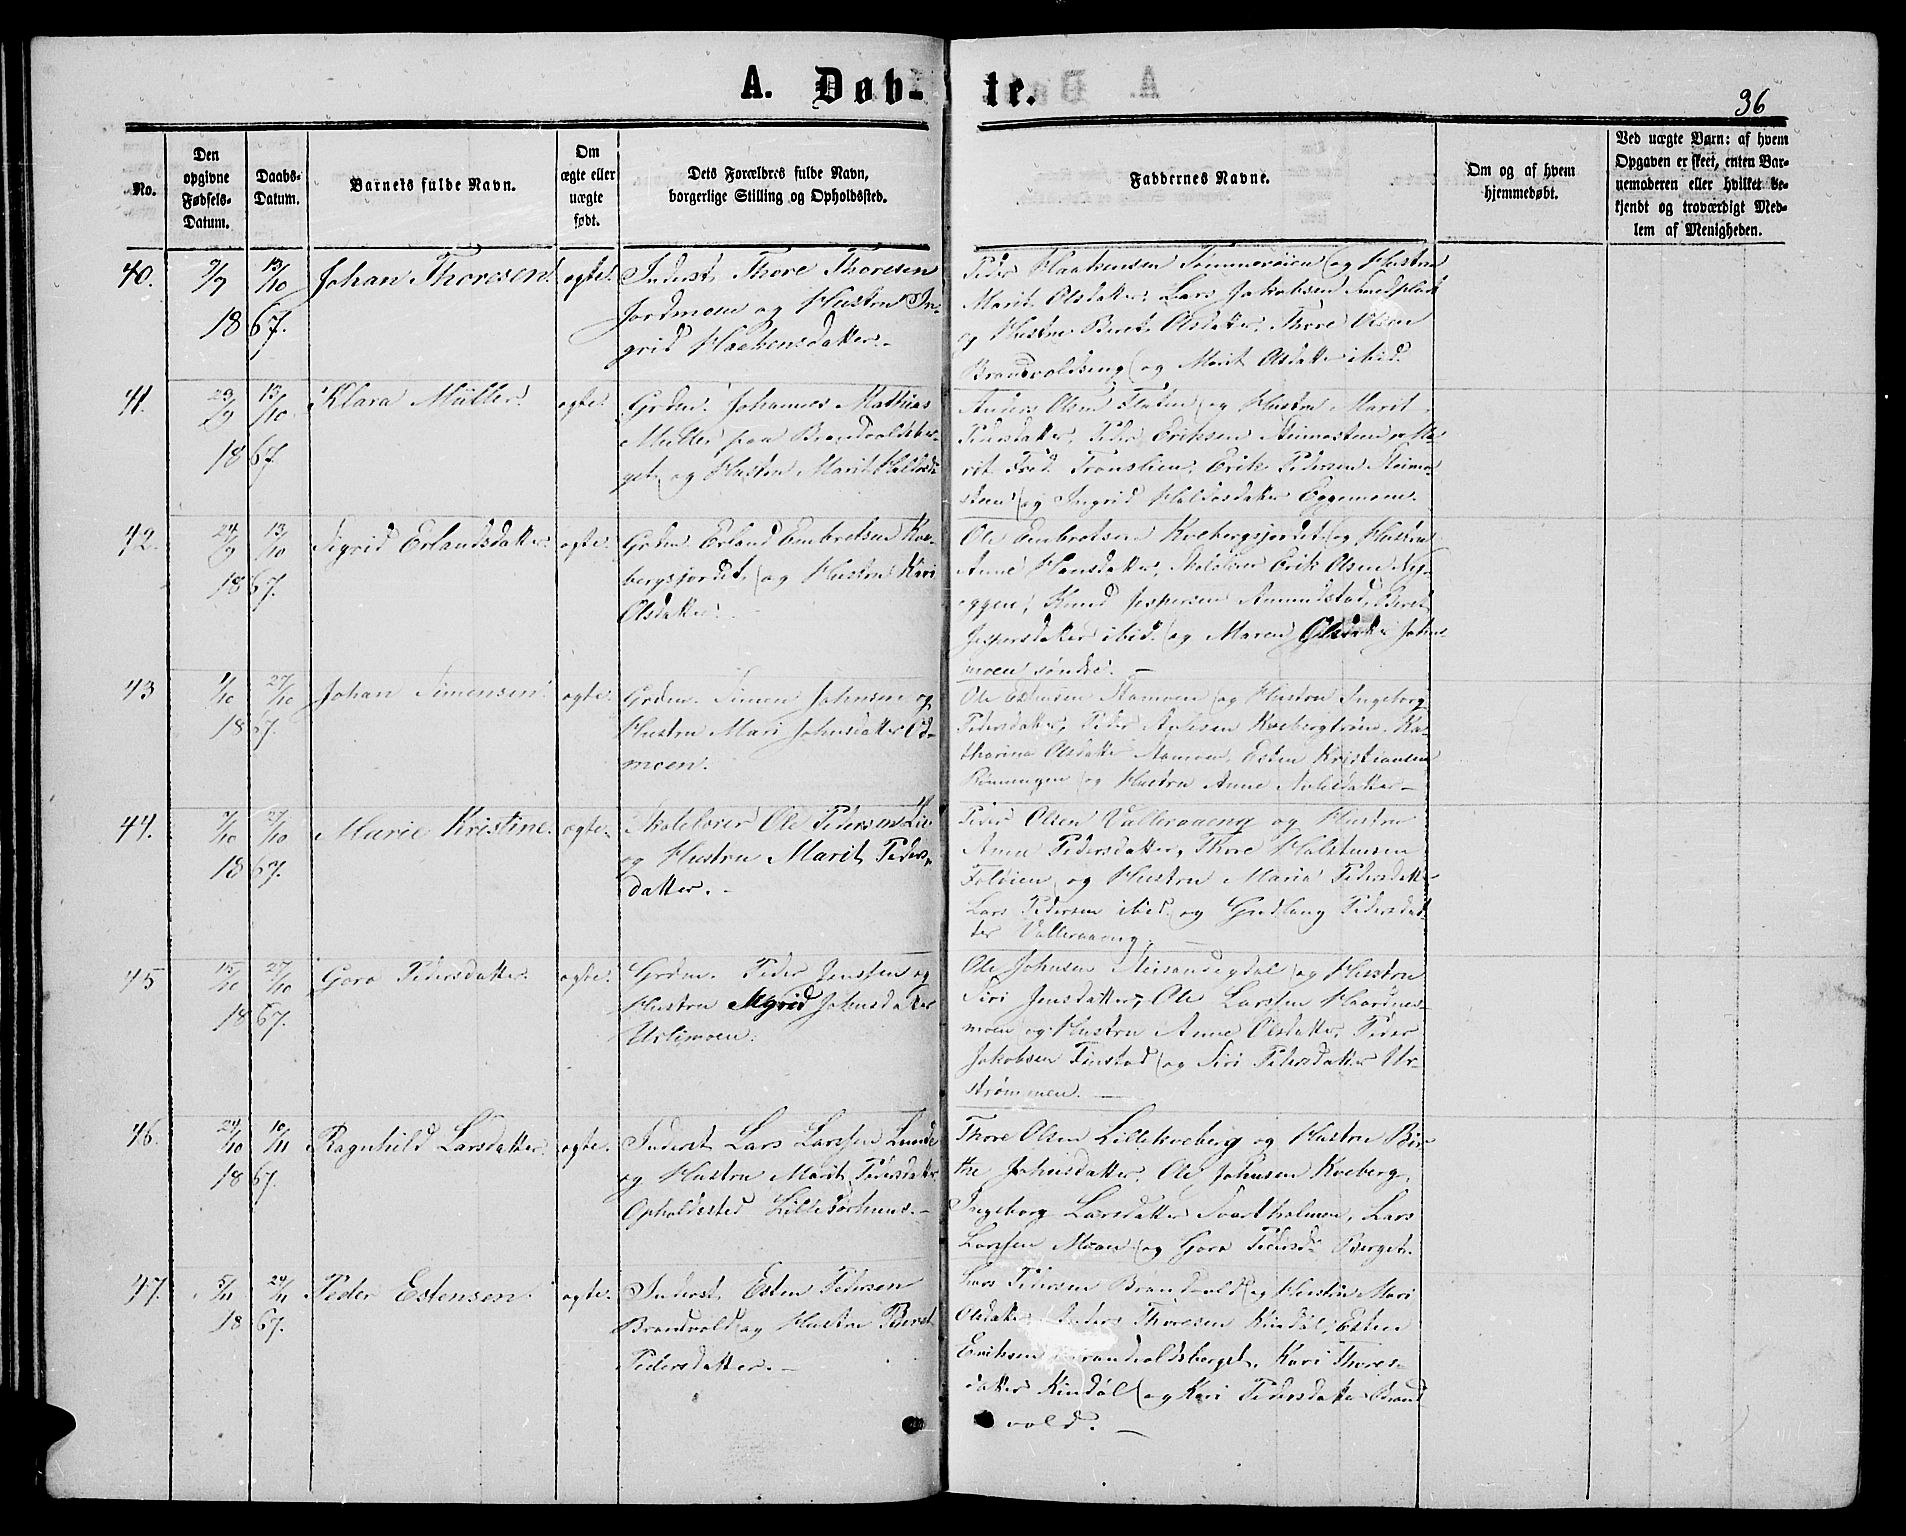 A. Døb-
te.
36
No.
Den
opgivne
Fødsels-
Datum.
Daabs-
Datum.
Barnets fulde Navn.
Om
ægte eller
uægte
født.
Dets Forældres fulde Navn,
borgerlige Stilling og Opholdssted.
Faddernes Navne.
Om og af hvem
hjemmedøbt.
Ved uægte Barn: af hvem
Opgaven er skeet, enten Bar-
nemoderen eller hvilket be-
kjendt og troværdigt Med-
lem af Menigheden.
40. 9/9 1867. 13/10 Johan Thoresen. ægte.
Inderst Thore Thoresen
Jordmoen og Hustru In-
grid Haakensdatter.
Peder Haakensen Tømmerøien og Hustru
Marit Olsdatter, Lars Jakobsen
og Hustru Beret Olsdatter, Thore Olsen
Brandvoldseng og Marit Olsdatter ibid.
41. 29/9 1867. 13/10 Klara Müller. ægte.
Grdm. Johannes Mathias
Müller paa Brandvoldsber-
get og Hustru Marit Haldosd.
Anders Olsen Floten og Hustru Marit
Pedersdatter, Peder Eriksen Steimosteen, Ma-
rit Fred. Tronslien, Erik Pedersen Steimo-
steen og Ingrid Haldosdatter Eggemoen.
42. 24/9 1867. 13/10 Sigrid Erlandsdatter. ægte.
Grdm. Erland Embretsen Kve-
bergsjordet og Hustru Kari
Olsdatter.
Ole Embretsen Kvebergsjordet og Hustru
Anne Hansdatter, Skolelærer Erik Olsen Ny-
eggen, Knud Jespersen Aamundstad, Beret
Jespersdatter ibid. og Maren Olsdatter
moen søndre.
43 1/10 1867. 27/10 Johan Simensen. ægte.
Grdm. Simen Johnsen og
Hustru Mari Johnsdatter
moen.
Ole Estensen Stamoen og Hustru Ingeborg
Pedersdatter, Peder Kvebergtrøen, Ka-
tharina Olsdatter Stamoen, Esten Kristiansen
Rønningen og Hustru Anne
44. 7/10 1867. 27/10 Marie Kristine. ægte.
Skolelærer Ole Pedersen Lie
og Hustru Marit Peders-
datter.
Peder Olsen Vallervaeng og Hustru
Anne Pedersdatter, Thore Halstensen
Foløien og Hustru Maria Pedersdatter
Lars Pedersen ibid. og Gudlaug Pedersdat-
ter Vallervaeng.
45 15/10 1867. 27/10 Goro Pedersdatter. ægte.
Grdm. Peder Jenssen og
Hustru Sigrid Johnsdatter
Urlimoen.
Ole Johnsen Meisandegdal og Hustru
Siri Jensdatter, Ole Larssen Haardnes-
moen og Hustru Anne Olsdatter, Peder
Jakobsen Finstad og Siri Pedersdatter Ur-
strømmen.
46. 24/10 1867. 10/11 Ragnhild Larsdatter. ægte.
Inderst Lars Larssen Lunde
og Hustru Marit Pedersdatter
Opholdssted Lillesørhuus.
Thore Olsen Lillekveberg og Hustru Bir-
the Johnsdatter, Ole Johnsen Kveberg,
Ingeborg Larsdatter Svartholmen, Lars
Larssen Moen og Goro Pedersd. Berget.
47. 5/11 1867. 24/11 Peder Estensen. ægte.
Inderst Esten Pedersen
Brandvold og Hustru Beret
Pedersdatter.
Lars Pedersen Brandvold og Hustru Mari
Olsdatter, Anders Thoresen Kindøl, Esten
Eriksen Brandvoldsberget, Kari Thores-
datter Kindøl og Kari Pedersdatter Brand-
vold.